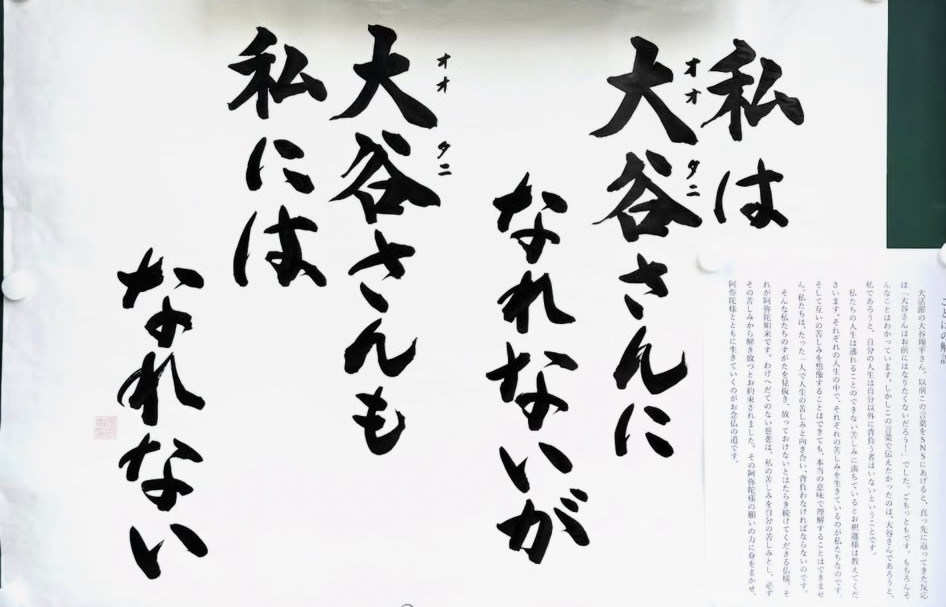 私は
大谷さんに
オオ タニ
なれないが
大谷さんも
オオ タニ
私には
なれない
大活躍の大谷翔平さん。以前この言葉をSNSにあげると、真っ先に返ってきた反応
は「大谷さんはお前にはなりたくないだろう!」でした。ごもっともです。もちろんそ
んなことはわかっています。しかしこの言葉で伝えたかったのは、大谷さんであろうと、
私であろうと、自分の人生は自分以外に背負う者はいないということです。
私たちの人生は逃れることのできない苦しみに満ちているとお釈迦様は教えてくだ
さいます。それぞれの人生の中で、それぞれの苦しみを生きているのが私たちなのです。
そして互いの苦しみを想像することはできても、本当の意味で理解することはできませ
ん。私たちは、たった一人で人生の苦しみと向き合い、背負わなければならないのです。
そんな私たちのすがたを見抜き、放っておけないとはたらき続けてくださる仏様、そ
れが阿弥陀如来です。わけへだてのない慈悲は、私の苦しみを自分の苦しみとし、必ず
その苦しみから解き放つとお約束されました。その阿弥陀様の願いの力に身をまかせ、
阿弥陀様とともに生きていくのがお念仏の道です。